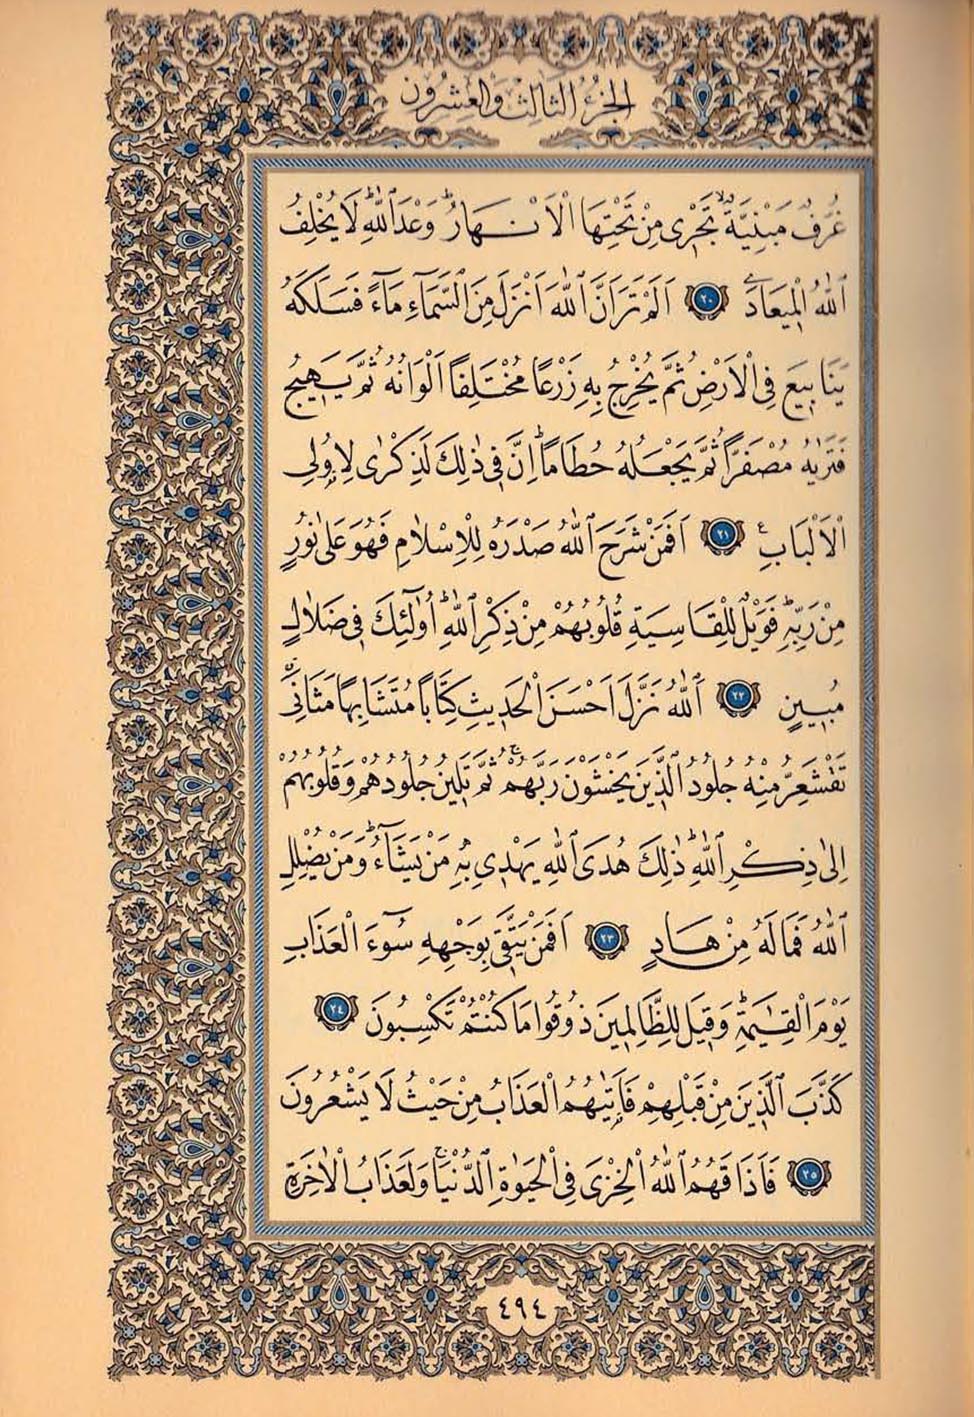 الجزء الثالث والعشرون
غُرَفٌ مَبْنِيَّةٌۙ تَجْرٖى مِنْ تَحْتِهَا الْاَنْهَارُؕ وَعْدَ اللّٰهِؕ لَا يُخْلِفُ
اللّٰهُ الْمٖيعَادَ ۝٢٠ اَلَمْ تَرَ اَنَّ اللّٰهَ اَنْزَلَ مِنَ السَّمَٓاءِ مَٓاءً فَسَلَكَهُ
يَنَابٖيعَ فِى الْاَرْضِ ثُمَّ يُخْرِجُ بِهٖ زَرْعًا مُخْتَلِفًا اَلْوَانُهُ ثُمَّ يَهٖيجُ
فَتَرٰيهُ مُصْفَرًّا ثُمَّ يَجْعَلُهُ حُطَامًاؕ اِنَّ فٖى ذٰلِكَ لَذِكْرٰى لِاُولِى
الْاَلْبَابِ ࣖ ۝٢١ اَفَمَنْ شَرَحَ اللّٰهُ صَدْرَهُ لِلْاِسْلَامِ فَهُوَ عَلٰى نُورٍ
مِنْ رَبِّهٖؕ فَوَيْلٌ لِلْقَاسِيَةِ قُلُوبُهُمْ مِنْ ذِكْرِ اللّٰهِؕ اُولٰٓئِكَ فٖى ضَلَالٍ
مُبٖينٍ ۝٢٢ اَللّٰهُ نَزَّلَ اَحْسَنَ الْحَدٖيثِ كِتَابًا مُتَشَابِهًا مَثَانِىَۗ
تَقْشَعِرُّ مِنْهُ جُلُودُ الَّذٖينَ يَخْشَوْنَ رَبَّهُمْۚ ثُمَّ تَلٖينُ جُلُودُهُمْ وَقُلُوبُهُمْ
اِلٰى ذِكْرِ اللّٰهِؕ ذٰلِكَ هُدَى اللّٰهِ يَهْدٖى بِهٖ مَنْ يَشَٓاءُؕ وَمَنْ يُضْلِلِ
اللّٰهُ فَمَا لَهُ مِنْ هَادٍ ۝٢٣ اَفَمَنْ يَتَّقٖى بِوَجْهِهٖ سُٓوءَ الْعَذَابِ
يَوْمَ الْقِيٰمَةِؕ وَقٖيلَ لِلظَّالِمٖينَ ذُوقُوا مَا كُنْتُمْ تَكْسِبُونَ ۝٢٤
كَذَّبَ الَّذٖينَ مِنْ قَبْلِهِمْ فَاَتٰيهُمُ الْعَذَابُ مِنْ حَيْثُ لَا يَشْعُرُونَ
۝٢٥ فَاَذَاقَهُمُ اللّٰهُ الْخِزْىَ فِى الْحَيٰوةِ الدُّنْيَاۚ وَلَعَذَابُ الْاٰخِرَةِ
٤٩٤